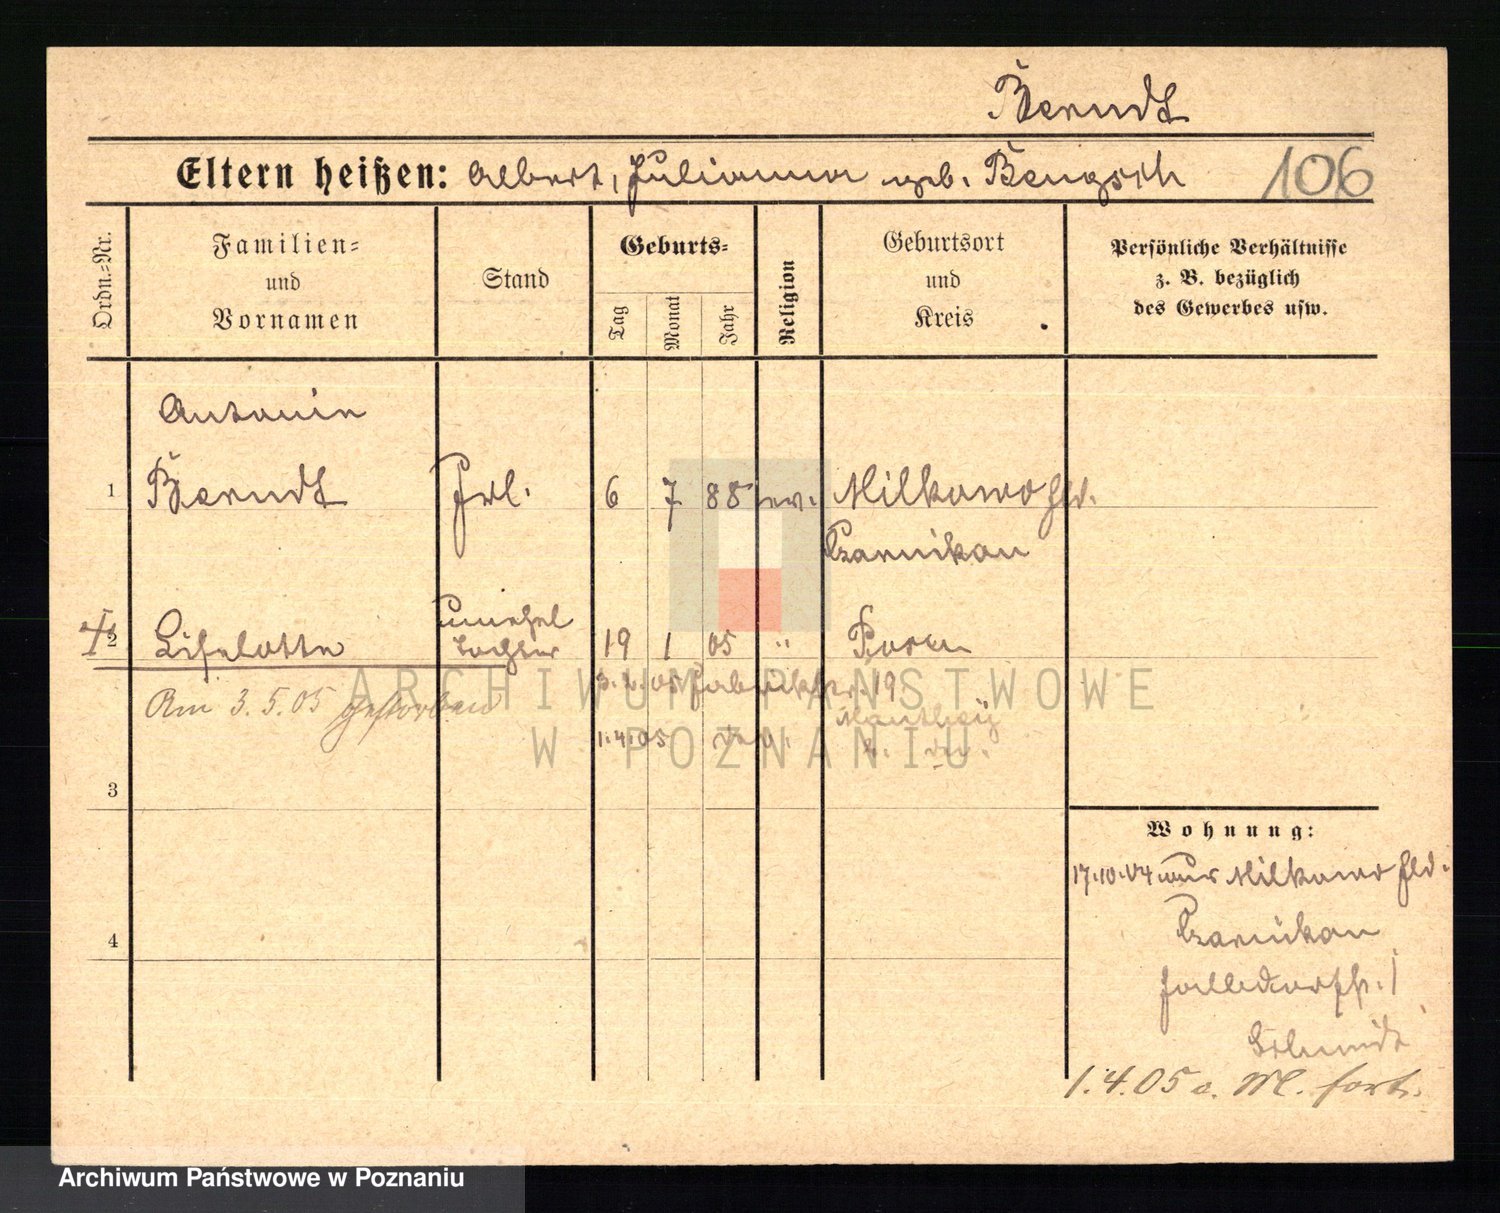 Berndt
Eltern heißen: Albert, Julianna geb. Bengsch
106
Ordn.-Nr.
Familien-
und
Vornamen
Stand
Geburts-
Tag
Monat
Jahr
Religion
Geburtsort
und
Kreis
Persönliche Verhältnisse
z. B. bezüglich
des Gewerbes usw.
Antonie
1 Berndt Frl. 6 7 88 ev. Milkowo Hld.
Czarnikau
unehel
2 Liselotte Tochter 19 1 05 " Posen
Am 3.5.05 gestorben
3.2.05 Fabrikstr. 19
1.4.05
3
4
Wohnung:
17.10.04 aus Milkowo Hld.
Czarnikau
Schmidt
1.4.05 o. M. fort.
ARCHIWUM PAŃSTWOWE
W POZNANIU
Archiwum Państwowe w Poznaniu